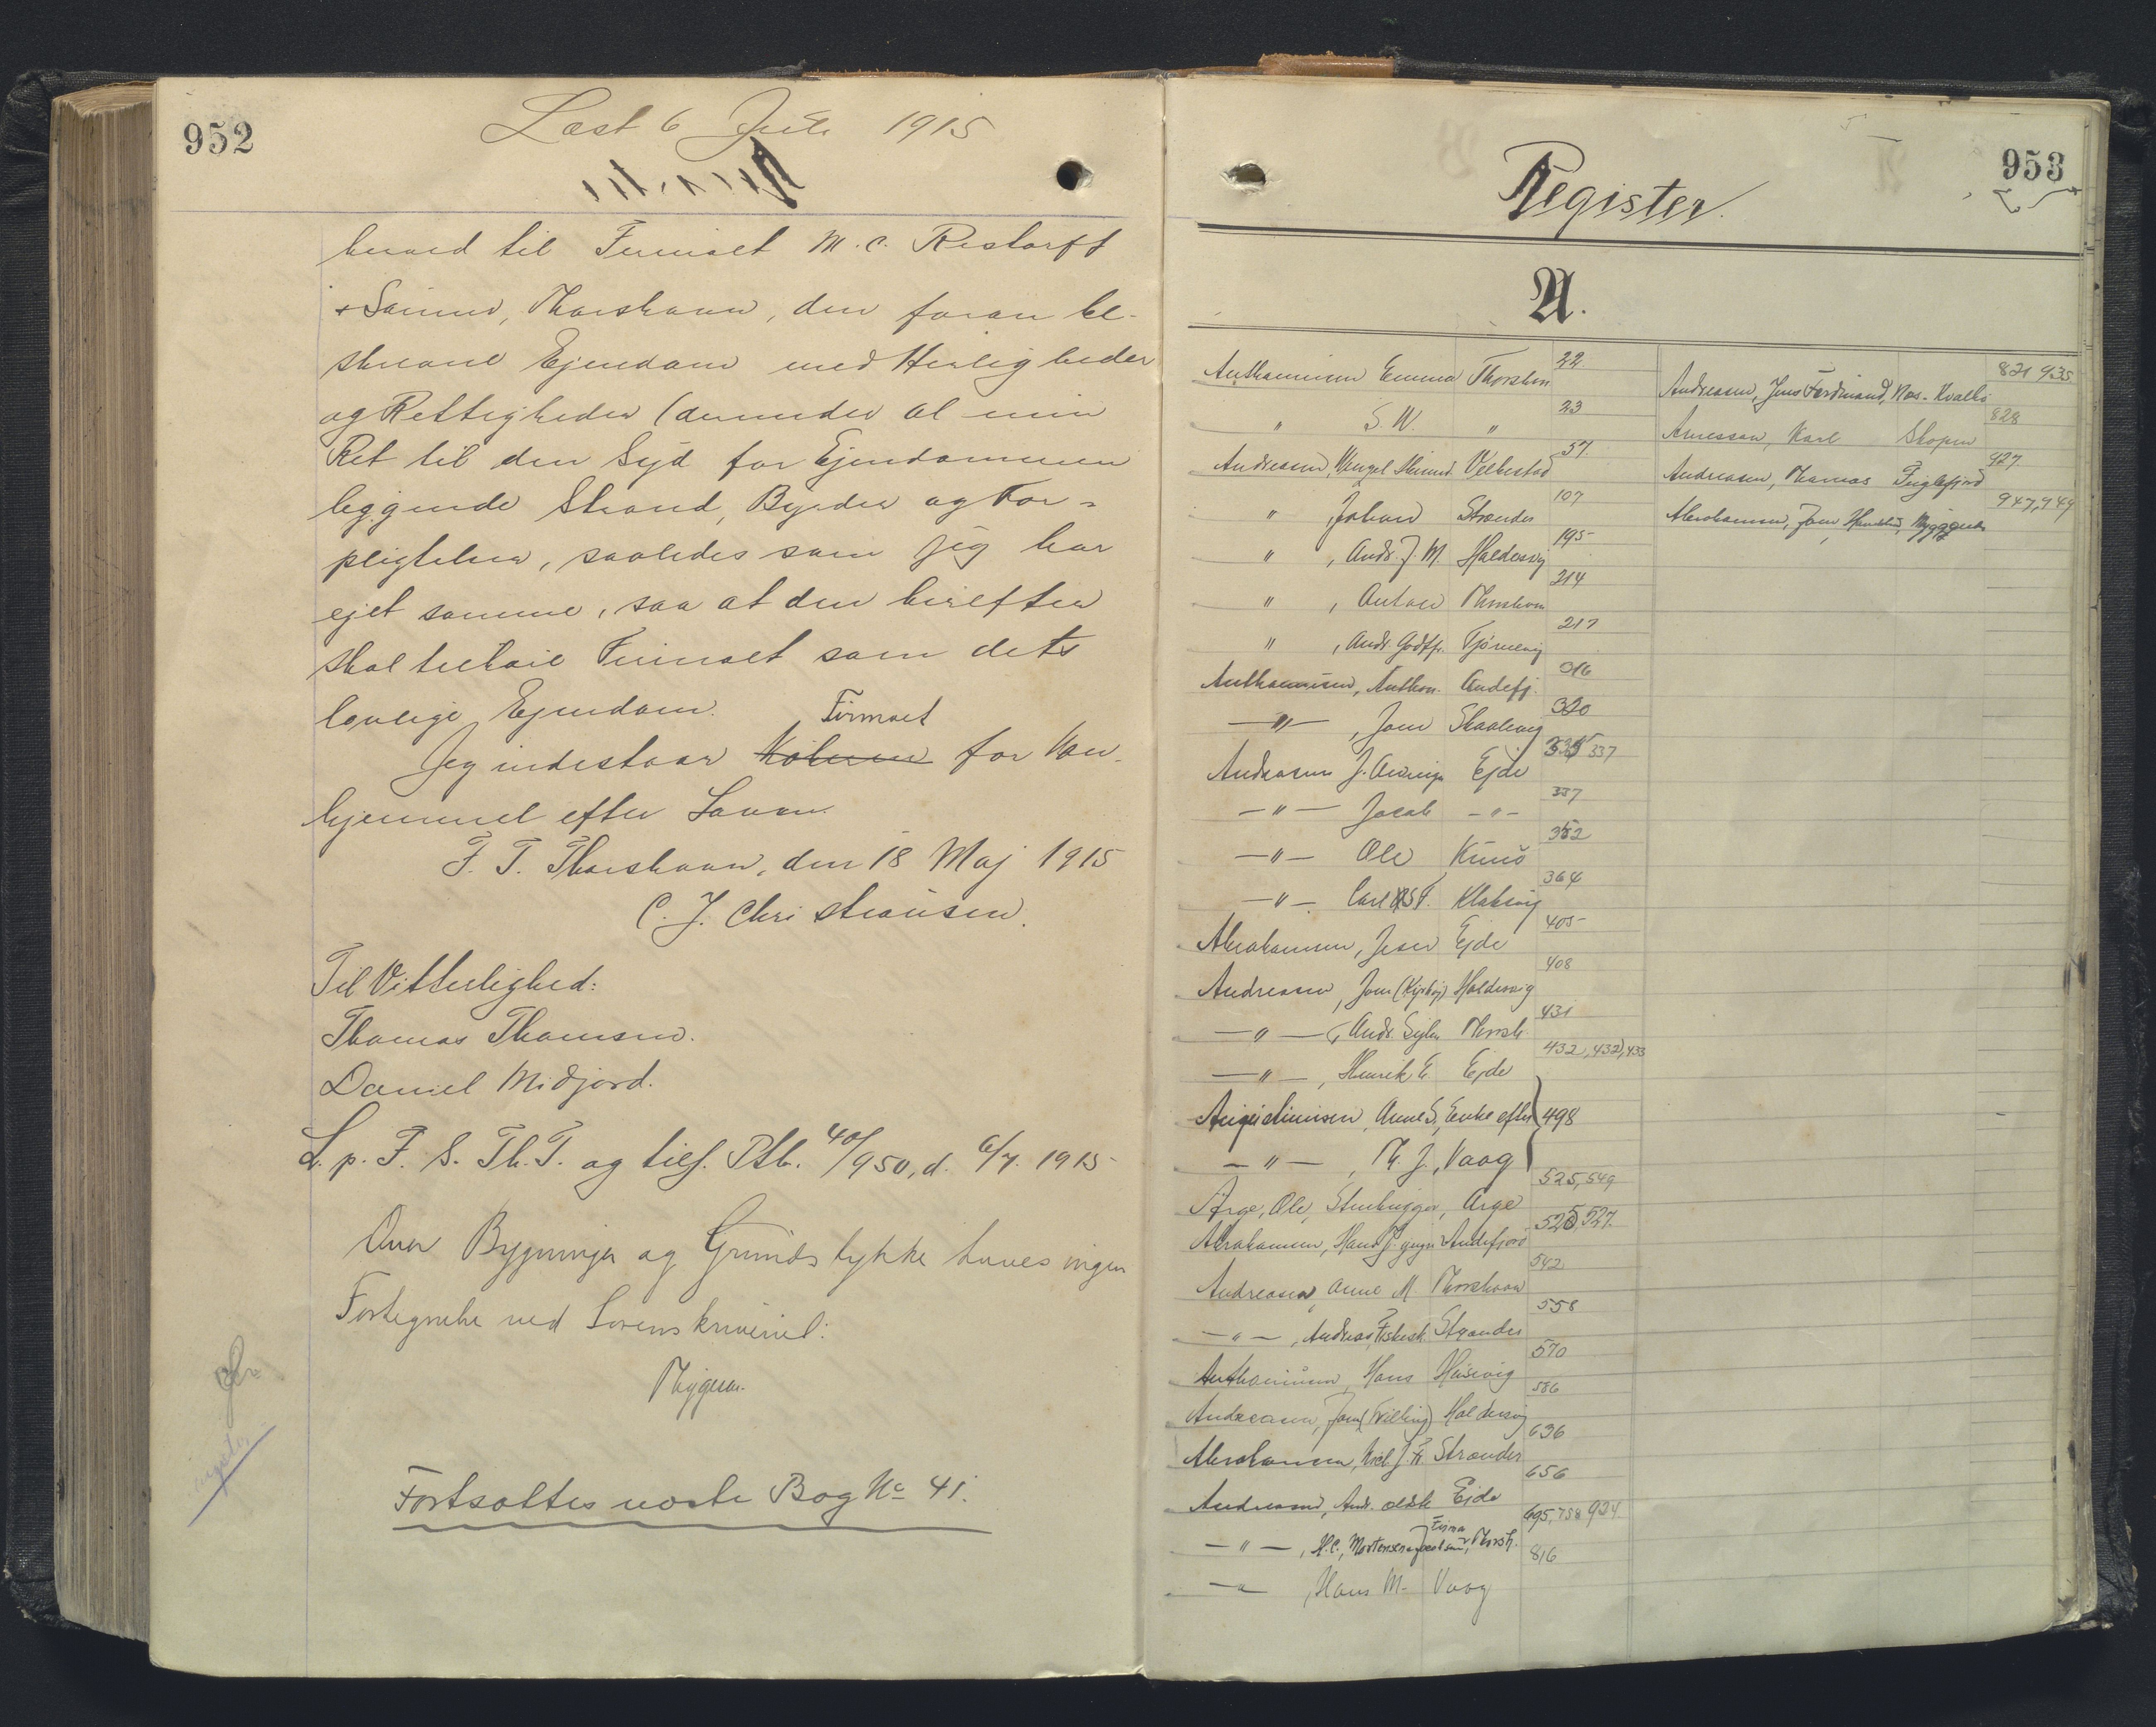 952
Læst 6 Juli 1915
herved til Firmaet M. C. Restorff
& Sønner, Thorshavn, den foran be-
skrevne Ejendom med Herligheder
og Rettigheder (derunder al min
Ret til den Syd for Ejendommen
liggende Strand, Byrder og For-
pligtelser, saaledes som jeg har
ejet samme, saa at den herefter
skal tilhøre Firmaet som dets
lovlige Ejendom.
Firmaet
Jeg indestaar Køberen for Van-
hjemmel efter Loven.
F. T. Thorshavn, den 18 Maj 1915
C. J. Christiansen.
Til Vitterlighed:
Thomas Thomsen.
Daniel Midjord.
L. p. F. S. Th. T. og tilf. Ptb. 40/950, d. 6/7. 1915
Over Bygninger og Grundstykke haves ingen
Fortegnelse ved Sorenskriveriet:
Fortsættes næste Bog No 41.
953
Register.
A.
Anthoniusen Emma Thorshvn 22.
" S. W. " 23
Andreasen, Wenzel Velbestad 57.
" , Johan Strender 107
" , Andr. J. M. Haldersvig 195
" , Anton Thorshvn 214
" , Andr. Godtfr. Tjørnevig 217
Anthoniusen, Anthon. Andefj. 316
—"— , Joen Skaalevig 320
Andreasen J. Ejde 335 337
—"— Jacob —"— 337
—"— Ole Kunø 352
—"— Carl Klaksvig 364
Abrahamsen, Jesper Ejde 405
Andreasen, Joen Haldersvig 408
—"— , Andr. Thorsh. 431
—"— , Henrik E. Ejde 432, 432, 433
Augustinusen, Anne S, Enke efter 498
—"— , M. J., Vaag
Arge, Ole, Arge 525, 549
Abrahamsen, Hans J. Andefjord 525, 527.
Andreasen, Anne M. Thorshavn 542
—"— , Andreas, Strender 558
Anthoniusen Hans Husevig 570
Andreasen, Joen (Tvilling) Haldersvig 586
Abrahamsen, Strender 636
Andreasen, Andr. Ejde 656
—"— , H. C., Mortensen Firma Thorsh. 695, 758 924
—"— , Hans M. Vaag 816
Andreasen, Jens Ferdinand, Næs-Kvalbø 821 935
Arnesson, Karl Skopen 828
Andreasen, Thomas Fuglefjord 927
Abrahamsen, Joen 947, 949